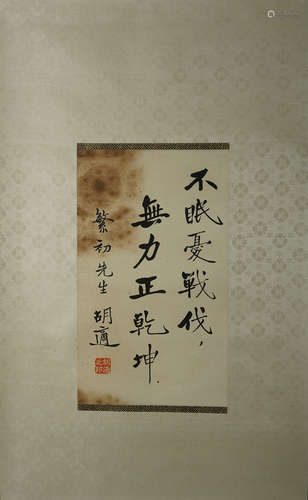 不眠憂戰伐，
無力正乾坤．
繁初先生 胡適